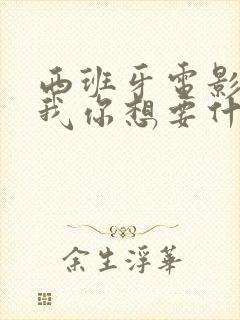 西班牙电影
我你想要什
余生浮华